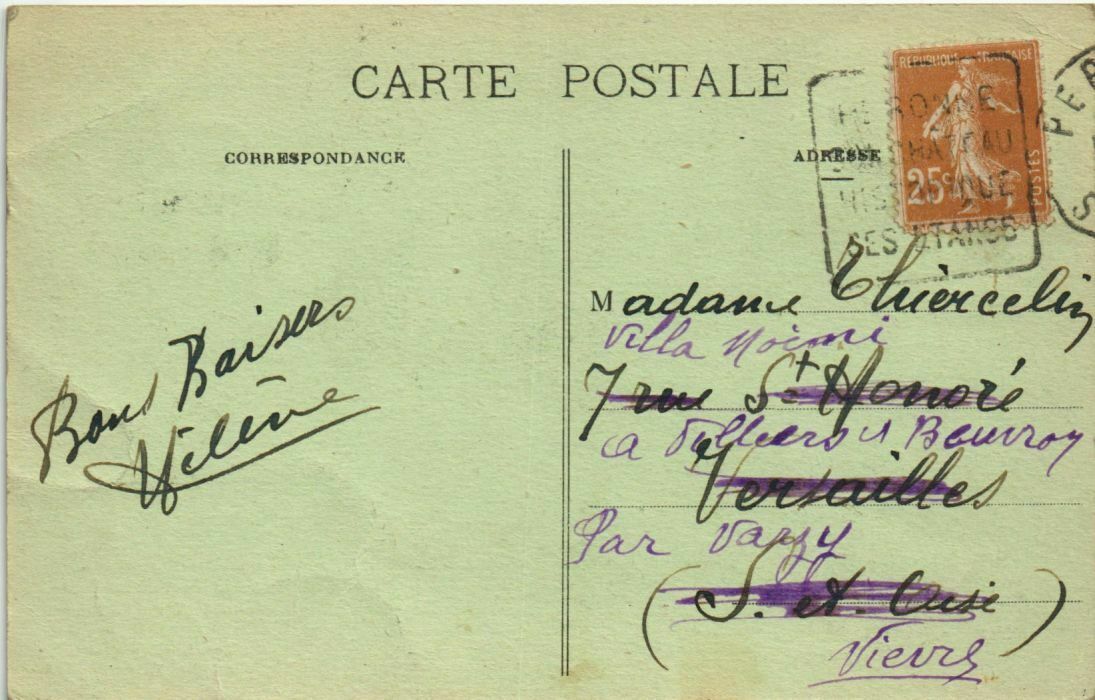 CARTE POSTALE
CORRESPONDANCE
ADRESSE
RÉPUBLIQUE FRANÇAISE
25c
POSTES
PERONNE
SON CHATEAU
HISTORIQUE
SES ETANGS
PER
S
Bons Baisers
Hélène
Madame Thiercelin
Villa Noémi
7 rue St Honoré
a Villiers s Beuvron
Versailles
Par Varzy
(S. et. Oise)
Nievre